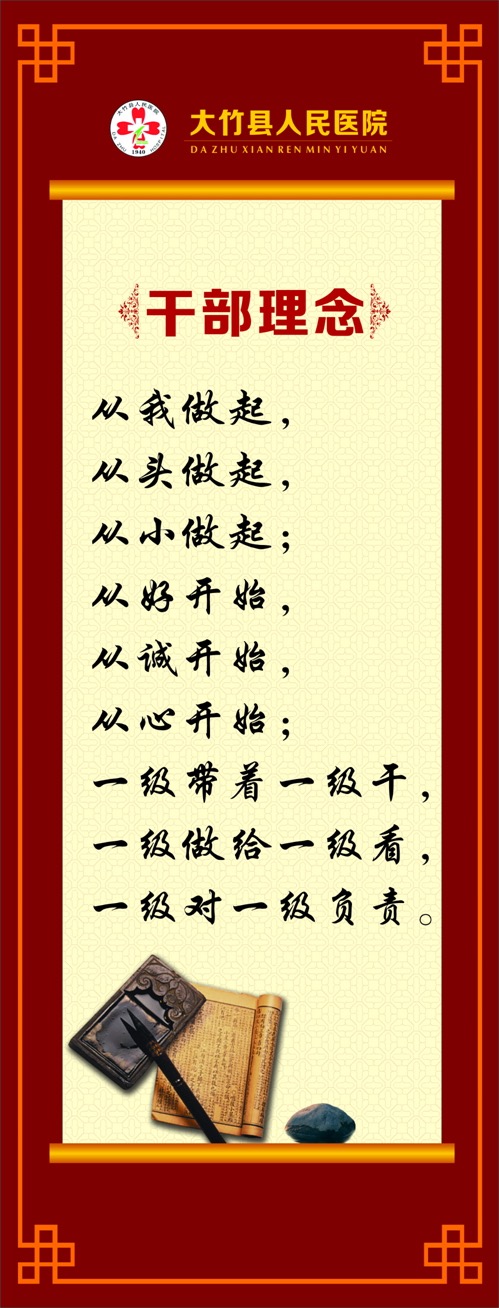 大竹县人民医院
1940
大竹县人民医院
DA ZHU XIAN REN MIN YI YUAN
干部理念
从我做起，
从头做起，
从小做起；
从好开始，
从诚开始，
从心开始；
一级带着一级干，
一级做给一级看，
一级对一级负责。